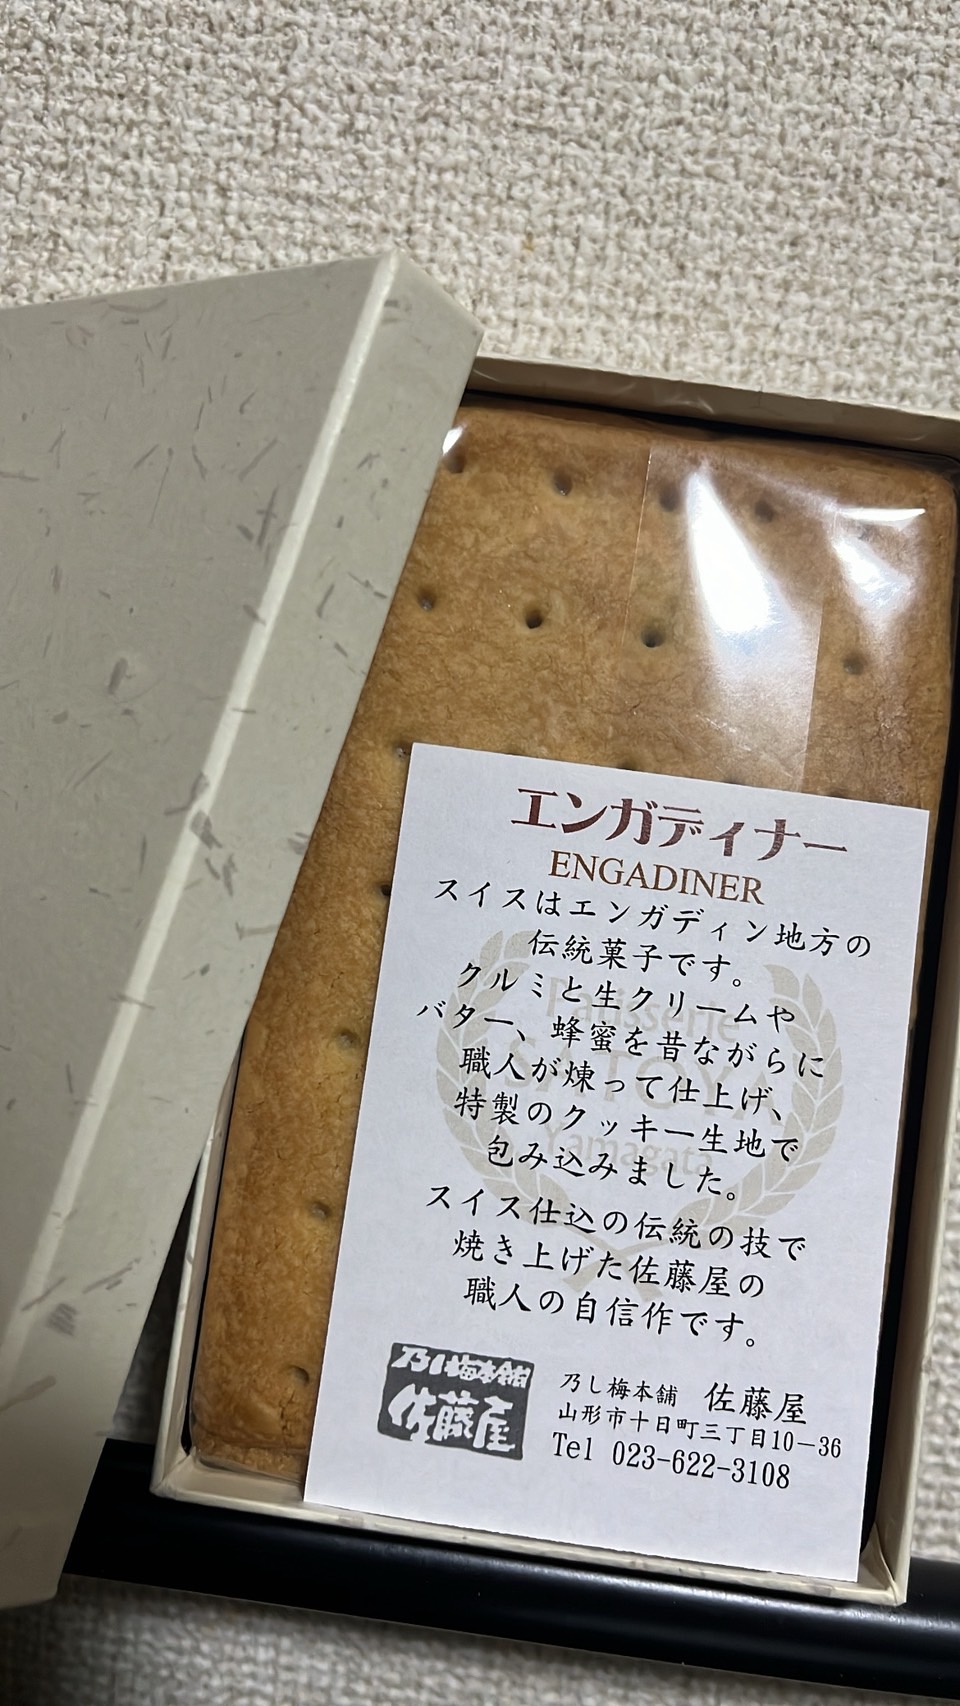 エンガディナー
ENGADINER
スイスはエンガディン地方の
伝統菓子です。
クルミと生クリームや
バター、蜂蜜を昔ながらに
職人が煉って仕上げ、
特製のクッキー生地で
包み込みました。
スイス仕込の伝統の技で
焼き上げた佐藤屋の
職人の自信作です。
Patisserie
SATOYA
Yamagata
乃し梅本舗
佐藤屋
乃し梅本舗 佐藤屋
山形市十日町三丁目10-36
Tel 023-622-3108